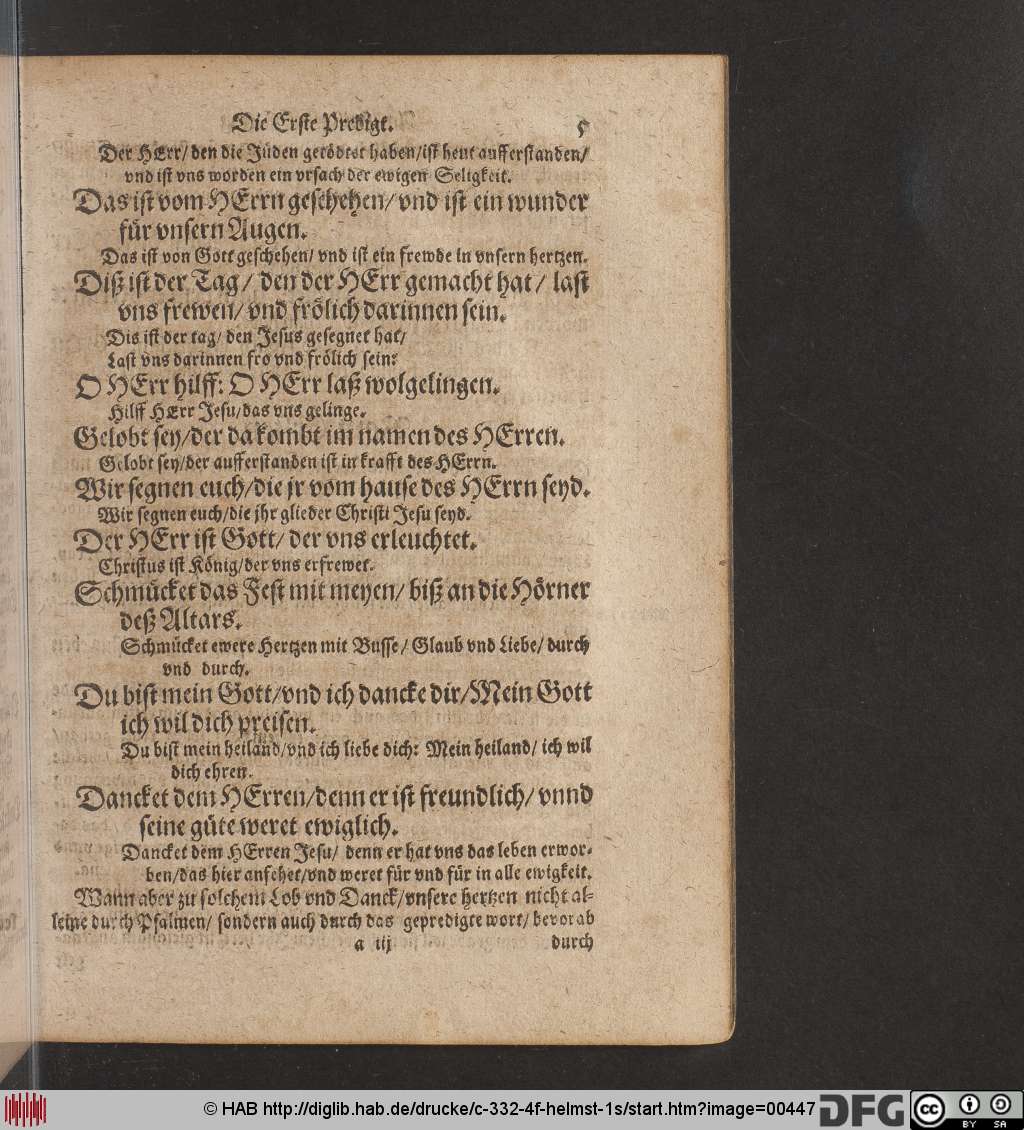 Die Erste Predigt. 5
Der HErr/ den die Jüden getödtet haben/ist heut aufferstanden/
vnd ist vns worden ein vrsach der ewigen Seligkeit.
Das ist vom HErrn geschehen/ vnd ist ein wunder
für vnsern Augen.
Das ist von Gott geschehen/ vnd ist ein frewde in vnsern hertzen.
Diß ist der Tag/ den der HErr gemacht hat/ last
vns frewen/ vnd frölich darinnen sein.
Dis ist der tag/ den Jesus gesegnet hat/
Last vns darinnen fro vnd frölich sein:
O HErr hilff: O HErr laß wolgelingen.
Hilff HErr Jesu/das vns gelinge.
Gelobt sey/der da kombt im namen des HErren.
Gelobt sey/der aufferstanden ist in krafft des HErrn.
Wir segnen euch/die jr vom hause des HErrn seyd.
Wir segnen euch/die jhr glieder Christi Jesu seyd.
Der HErr ist Gott/ der vns erleuchtet.
Christus ist König/der vns erfrewet.
Schmücket das Fest mit meyen/ biß an die Hörner
deß Altars.
Schmücket ewere Hertzen mit Busse/ Glaub vnd Liebe/ durch
vnd durch.
Du bist mein Gott/vnd ich dancke dir/Mein Gott
ich wil dich preisen.
Du bist mein heiland/vnd ich liebe dich: Mein heiland/ ich wil
dich ehren.
Dancket dem HErren/denn er ist freundlich/ vnnd
seine güte weret ewiglich.
Dancket dem HErren Jesu/ denn er hat vns das leben erwor-
ben/das hier ansehet/vnd weret für vnd für in alle ewigkeit.
Wann aber zu solchem Lob vnd Danck/vnsere hertzen nicht al-
leine durch Psalmen/ sondern auch durch das gepredigte wort/ bevorab
a iij durch
© HAB http://diglib.hab.de/drucke/c-332-4f-helmst-1s/start.htm?image=00447
DFG
cc BY SA